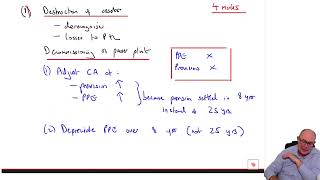 (1) Destruction of assets 4 marks
– derecognise
– losses to P+L
Decommissioning of power plant
PPE X
Provisions X
(1) Adjust CA of :
– provision ↑
– PPE ↑
because provision settled in 8 yrs
instead of 25 yrs
(2) Depreciate PPE over 8 yrs (not 25 yrs)